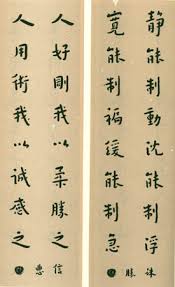 靜能制動沈能制浮
寬能制褊緩能制急
人好剛我以柔勝之
人用術我以誠感之
信
惠